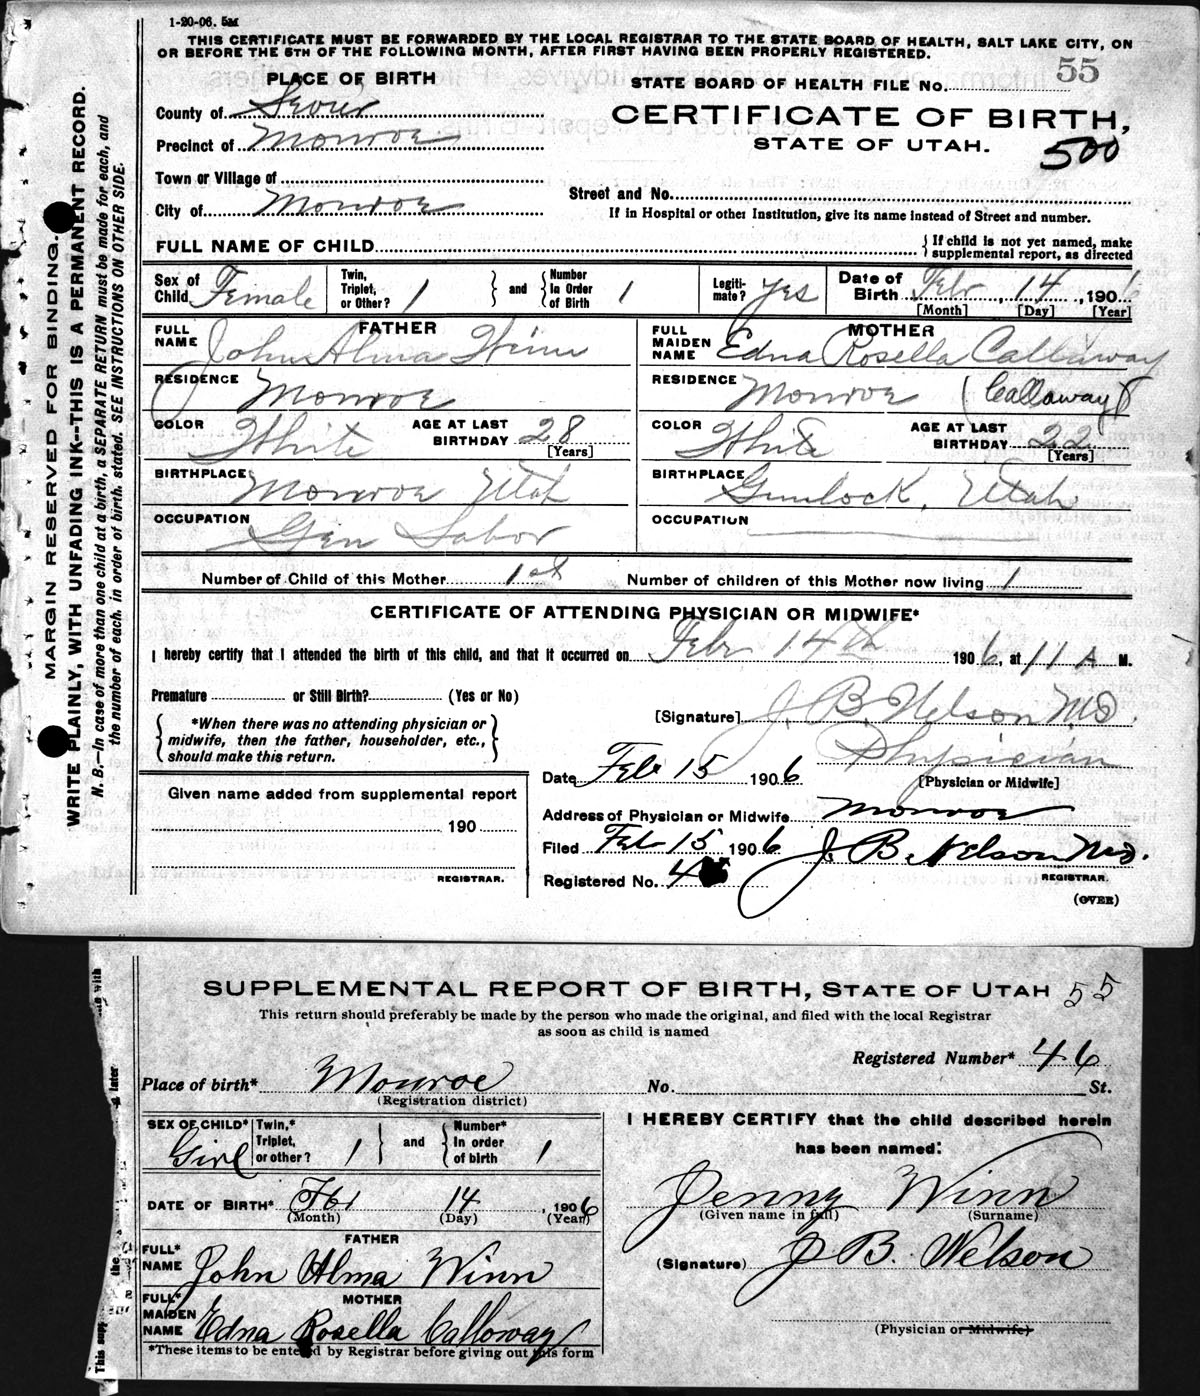 1-20-06. 5M
THIS CERTIFICATE MUST BE FORWARDED BY THE LOCAL REGISTRAR TO THE STATE BOARD OF HEALTH, SALT LAKE CITY, ON
OR BEFORE THE 5TH OF THE FOLLOWING MONTH, AFTER FIRST HAVING BEEN PROPERLY REGISTERED.
PLACE OF BIRTH
STATE BOARD OF HEALTH FILE No. 55
County of Sevier
CERTIFICATE OF BIRTH,
Precinct of Monroe
STATE OF UTAH.
500
Town or Village of
Street and No.
City of Monroe
If in Hospital or other Institution, give its name instead of Street and number.
FULL NAME OF CHILD
{ If child is not yet named, make
supplemental report, as directed
Sex of Child Female
Twin, Triplet, or Other? 1 } and { Number In Order of Birth 1
Legiti-mate? Yes
Date of Birth Febr, 14, 1906
[Month] [Day] [Year]
FATHER
FULL NAME John Alma Winn
MOTHER
FULL MAIDEN NAME Edna Rosella Callaway
RESIDENCE Monroe
RESIDENCE Monroe (Calloway)
COLOR White
AGE AT LAST BIRTHDAY 28
[Years]
COLOR White
AGE AT LAST BIRTHDAY 22
[Years]
BIRTHPLACE Monroe Utah
BIRTHPLACE Gunlock, Utah
OCCUPATION Gen Labor
OCCUPATION
Number of Child of this Mother 1st
Number of children of this Mother now living 1
CERTIFICATE OF ATTENDING PHYSICIAN OR MIDWIFE*
I hereby certify that I attended the birth of this child, and that it occurred on Febr 14th 1906, at 11 A M.
Premature or Still Birth? (Yes or No)
{ *When there was no attending physician or
midwife, then the father, householder, etc.,
should make this return. }
[Signature] J. B. Nelson M.D.
Physician
[Physician or Midwife]
Date Feb 15 1906
Given name added from supplemental report
190
REGISTRAR.
Address of Physician or Midwife Monroe
Filed Feb 15 1906 J. B. Nelson M.D.
REGISTRAR.
Registered No. 46
(OVER)
MARGIN RESERVED FOR BINDING.
WRITE PLAINLY, WITH UNFADING INK--THIS IS A PERMANENT RECORD.
N. B.—In case of more than one child at a birth, a SEPARATE RETURN must be made for each, and
the number of each. in order of birth. stated. SEE INSTRUCTIONS ON OTHER SIDE.
SUPPLEMENTAL REPORT OF BIRTH, STATE OF UTAH 55
This return should preferably be made by the person who made the original, and filed with the local Registrar
as soon as child is named
Registered Number* 46
Place of birth* Monroe No. St.
(Registration district)
SEX OF CHILD* Girl
Twin,* Triplet, or other? 1 } and { Number* In order of birth 1
I HEREBY CERTIFY that the child described herein
has been named:
DATE OF BIRTH* Feb 14, 1906
(Month) (Day) (Year)
Jenny Winn
(Given name in full) (Surname)
FATHER
FULL* NAME John Alma Winn
(Signature) J B. Nelson
MOTHER
FULL* MAIDEN NAME Edna Rosella Calloway
(Physician or Midwife)
*These items to be entered by Registrar before giving out this form